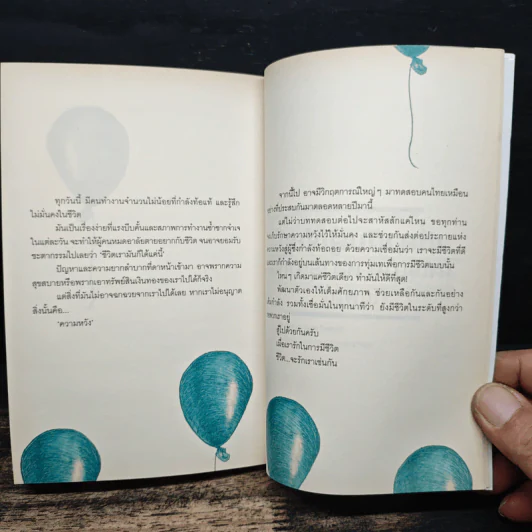 ทุกวันนี้ มีคนทำงานจำนวนไม่น้อยที่กำลังท้อแท้ และรู้สึก
ไม่มั่นคงในชีวิต
มันเป็นเรื่องง่ายที่แรงบีบคั้นและสภาพการทำงานซ้ำซากจำเจ
ในแต่ละวัน จะทำให้ผู้คนหมดอาลัยตายอยากกับชีวิต จนอาจยอมรับ
ชะตากรรมไปเลยว่า 'ชีวิตเรามันก็ได้แค่นี้'
ปัญหาและความยากลำบากที่ดาหน้าเข้ามา อาจพรากความ
สุขสบายหรือพรากเอาทรัพย์สินเงินทองของเราไปได้ก็จริง
แต่สิ่งที่มันไม่อาจฉกฉวยจากเราไปได้เลย หากเราไม่อนุญาต
สิ่งนั้นคือ...
'ความหวัง'
จากนี้ไป อาจมีวิกฤตการณ์ใหญ่ๆ มาทดสอบคนไทยเหมือน
อย่างที่ประสบกันมาตลอดหลายปีมานี้
แต่ไม่ว่าบททดสอบต่อไปจะสาหัสสักแค่ไหน ขอทุกท่าน
จงเก็บรักษาความหวังไว้ให้มั่นคง และช่วยกันส่งต่อประกายแห่ง
ความหวังสู่ผู้ซึ่งกำลังท้อถอย ด้วยความเชื่อมั่นว่า เราจะมีชีวิตที่ดี
เรากำลังอยู่บนเส้นทางของการทุ่มเทเพื่อการมีชีวิตแบบนั้น
ไหนๆ เกิดมาแค่ชีวิตเดียว ทำมันให้ดีที่สุด!
พัฒนาตัวเองให้เต็มศักยภาพ ช่วยเหลือกันและกันอย่าง
กำลัง รวมทั้งเชื่อมั่นในทุกนาทีว่า ยังมีชีวิตในระดับที่สูงกว่า
เราอยู่
สู้ไปด้วยกันครับ
เมื่อเรารักในการมีชีวิต
ชีวิต...จะรักเราเช่นกัน